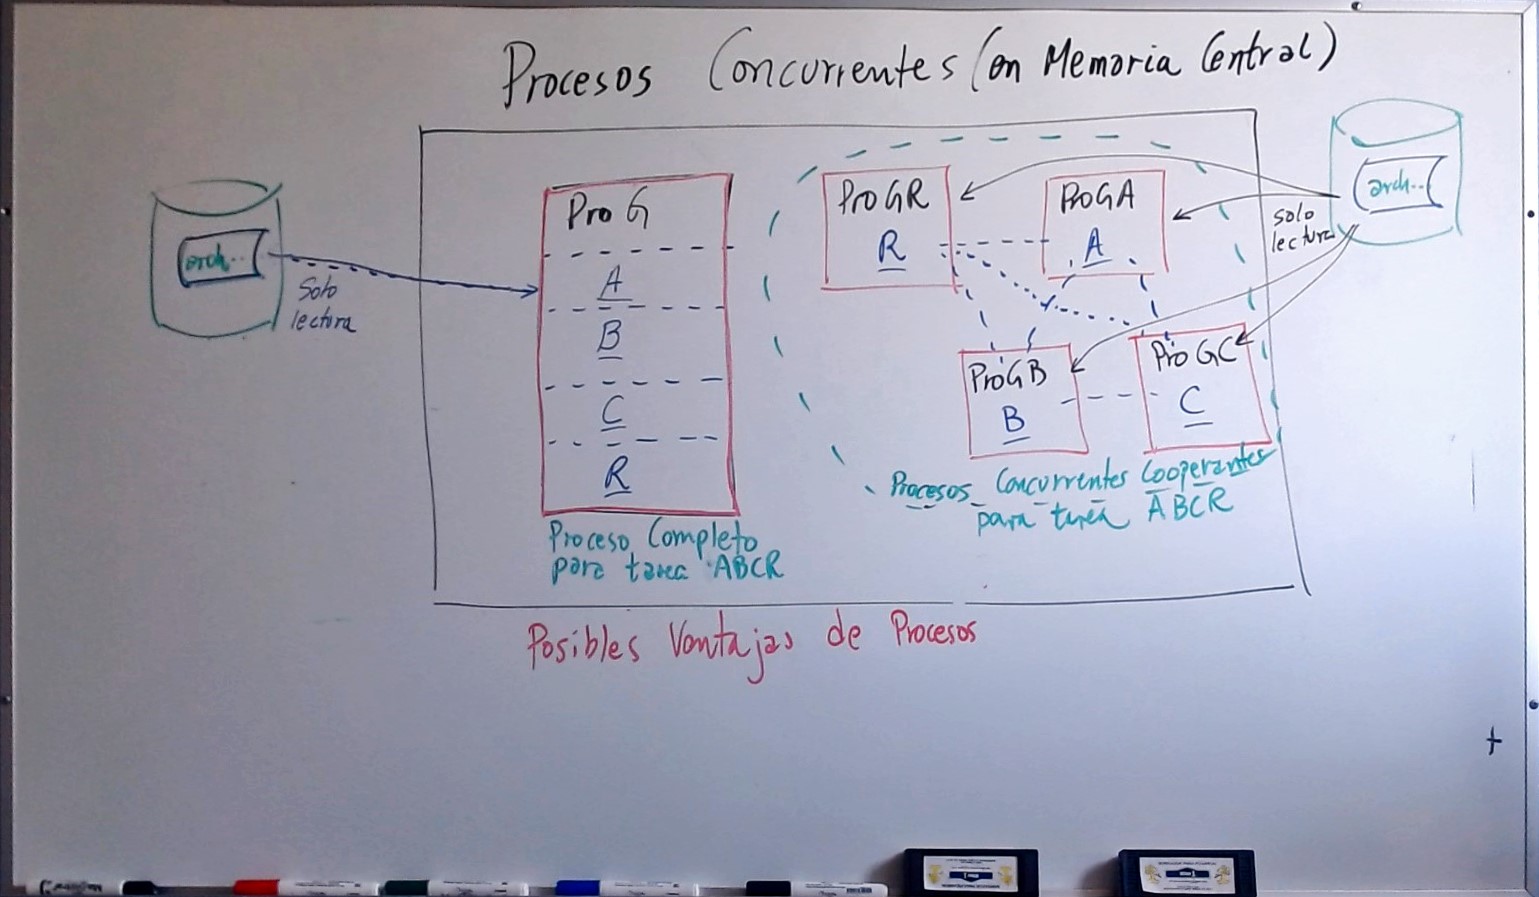 Procesos Concurrentes (en Memoria Central)
arch..
Solo
lectura
Pro G
A
B
C
R
Proceso Completo
para tarea ABCR
ProGR
R
ProGA
A
ProGB
B
ProGC
C
Procesos Concurrentes Cooperantes
para tarea ABCR
arch..
solo
lectura
Posibles Ventajas de Procesos